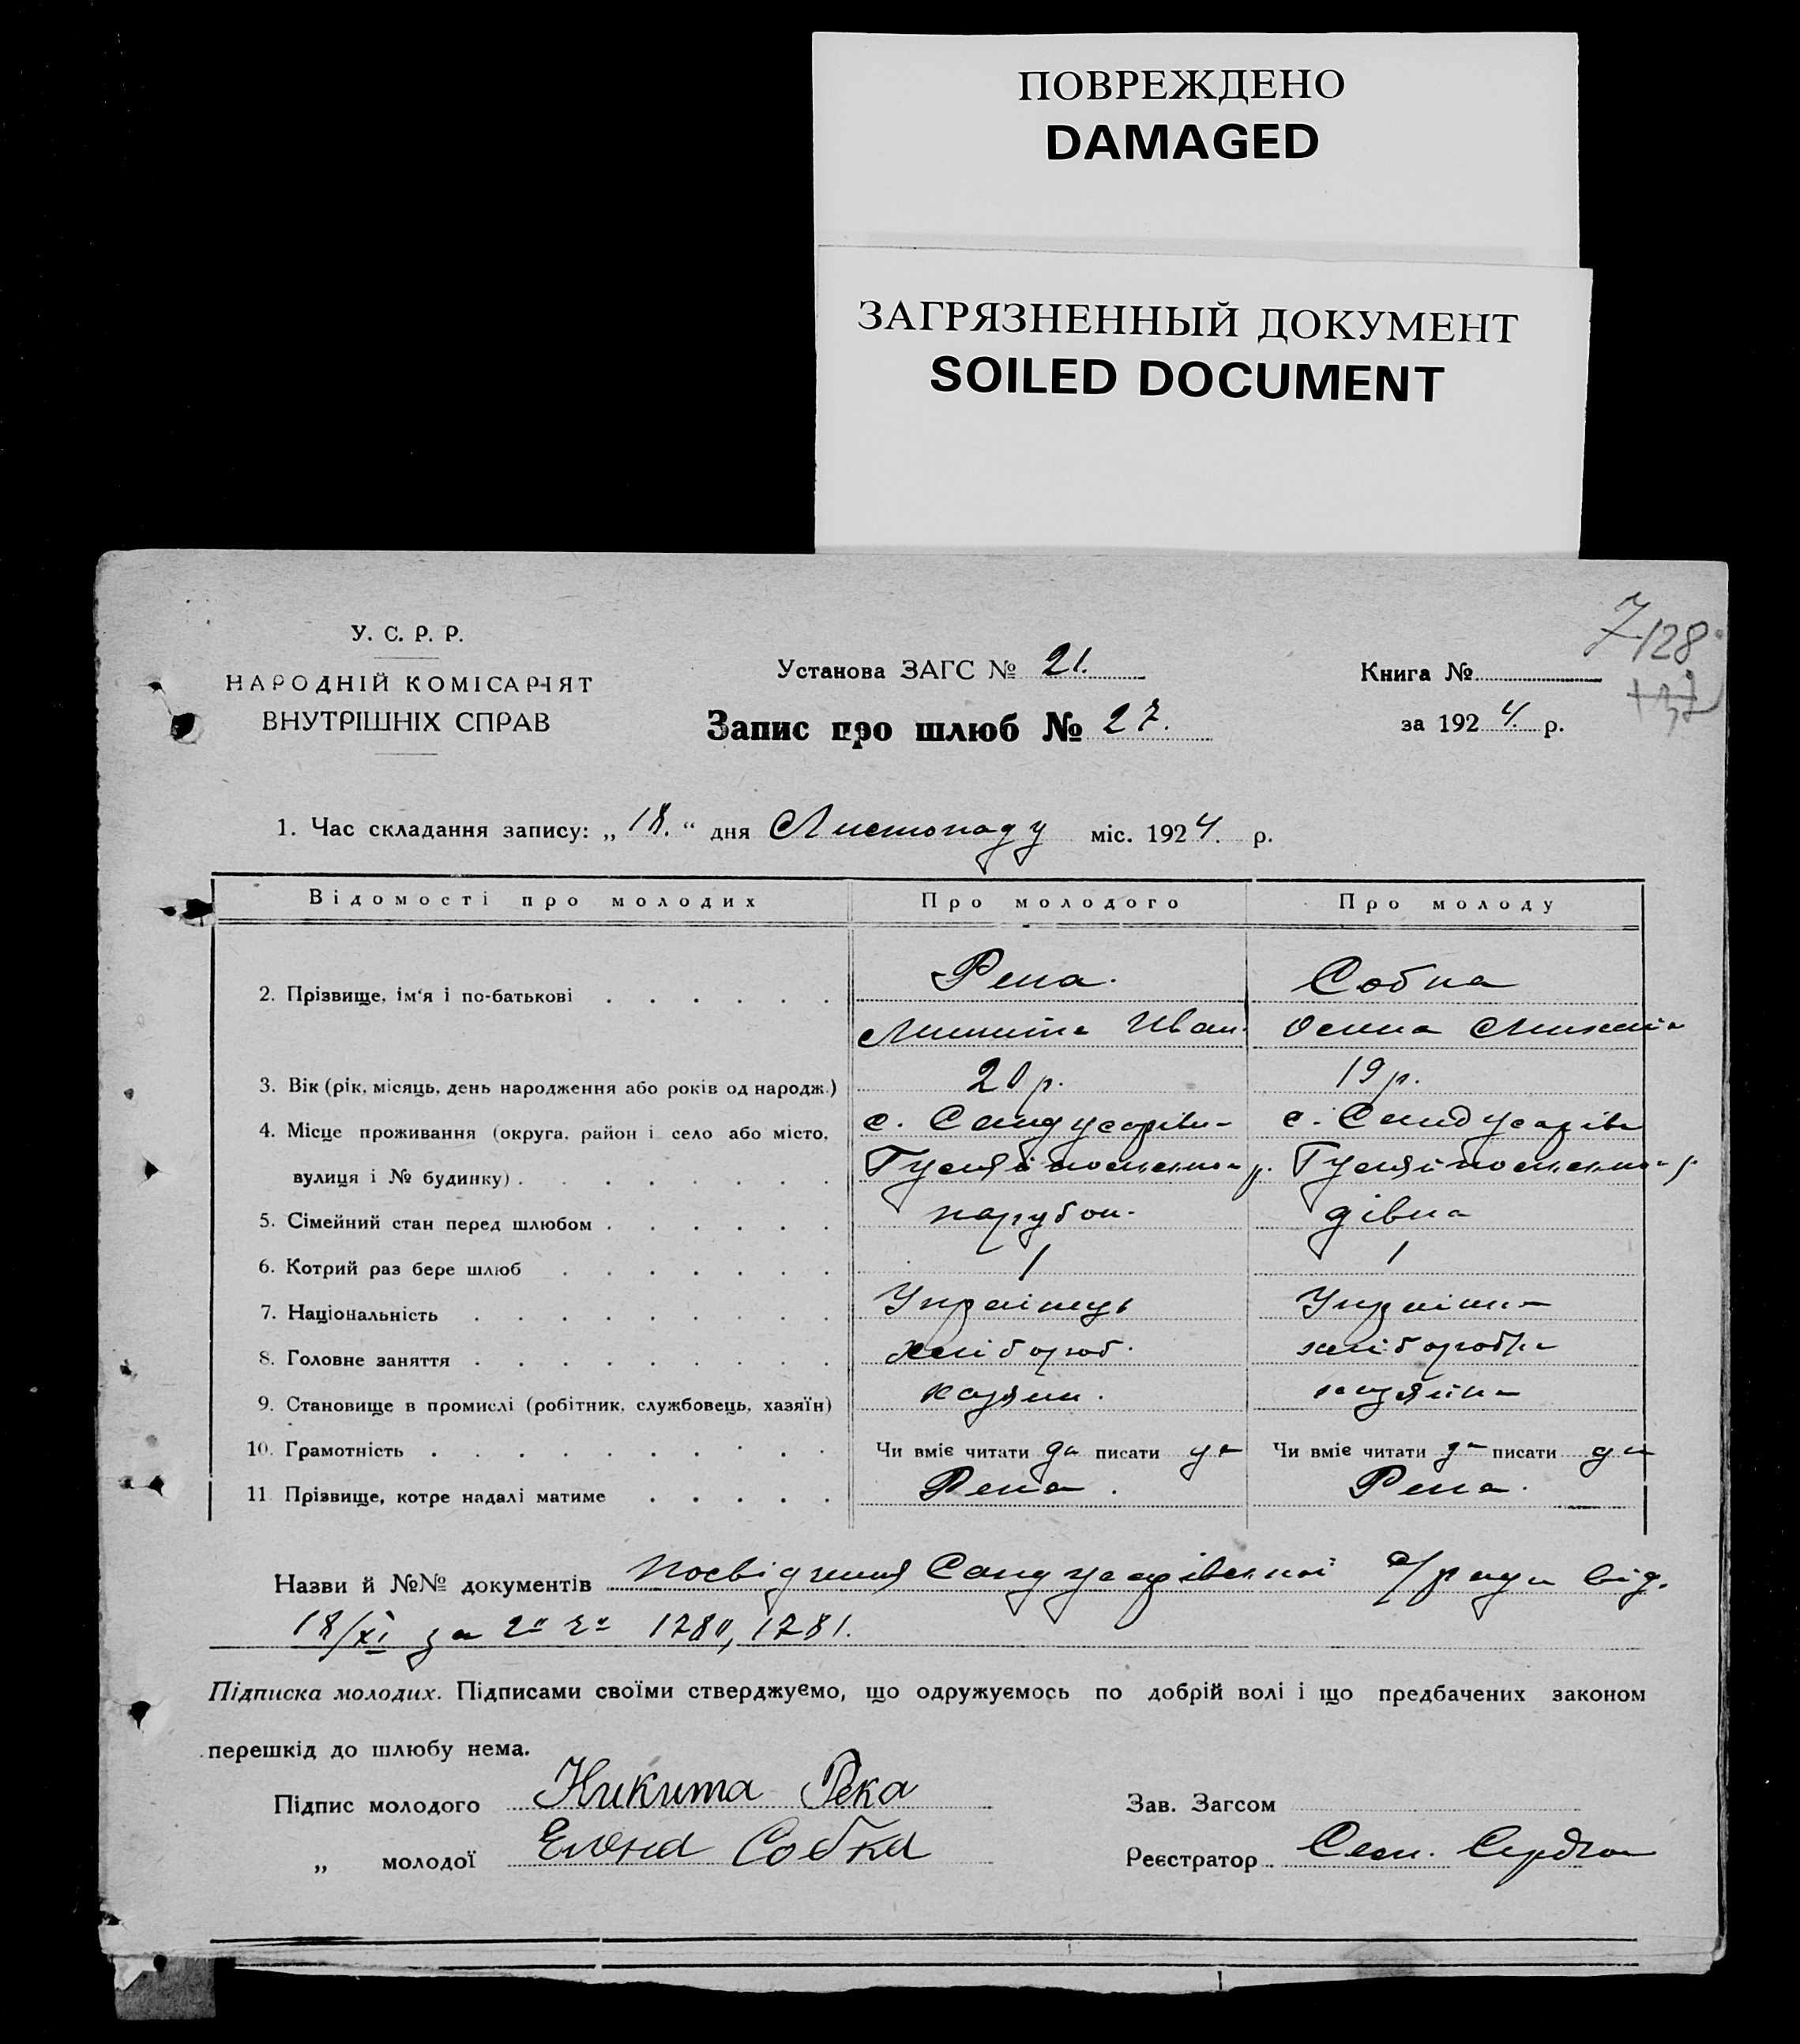 ПОВРЕЖДЕНО
DAMAGED
ЗАГРЯЗНЕННЫЙ ДОКУМЕНТ
SOILED DOCUMENT
7/128
У. С. Р. Р.
НАРОДНІЙ КОМІСАРІЯТ
ВНУТРІШНІХ СПРАВ
Установа ЗАГС № 21.
Запис про шлюб № 27.
Книга №
за 1924 р.
1. Час складання запису: „18.“ дня Листопаду міс. 1924. р.
Відомості про молодих Про молодого Про молоду
2. Прізвище, ім'я і по-батькові Река. Собка
Микита Иван. Олена
3. Вік (рік, місяць, день народження або років од народж.) 20 р. 19 р.
4. Місце проживання (округа, район і село або місто, с. с.
вулиця і № будинку)
5. Сімейний стан перед шлюбом парубок. дівка
6. Котрий раз бере шлюб 1 1
7. Національність Українець Українка
8. Головне заняття хлібороб. хліборобка
9. Становище в промислі (робітник, службовець, хазяїн) хазяин. хазяйка
10. Грамотність Чи вміє читати да писати да Чи вміє читати да писати да
11 Прізвище, котре надалі матиме Река. Река.
Назви й №№ документів Посвідчення с/ради від.
18/XI за 1280, 1281.
Підписка молодих. Підписами своїми стверджуємо, що одружуємось по добрій волі і що предбачених законом
перешкід до шлюбу нема.
Підпис молодого Никита Река Зав. Загсом
„ молодої Елена Собка Реєстратор